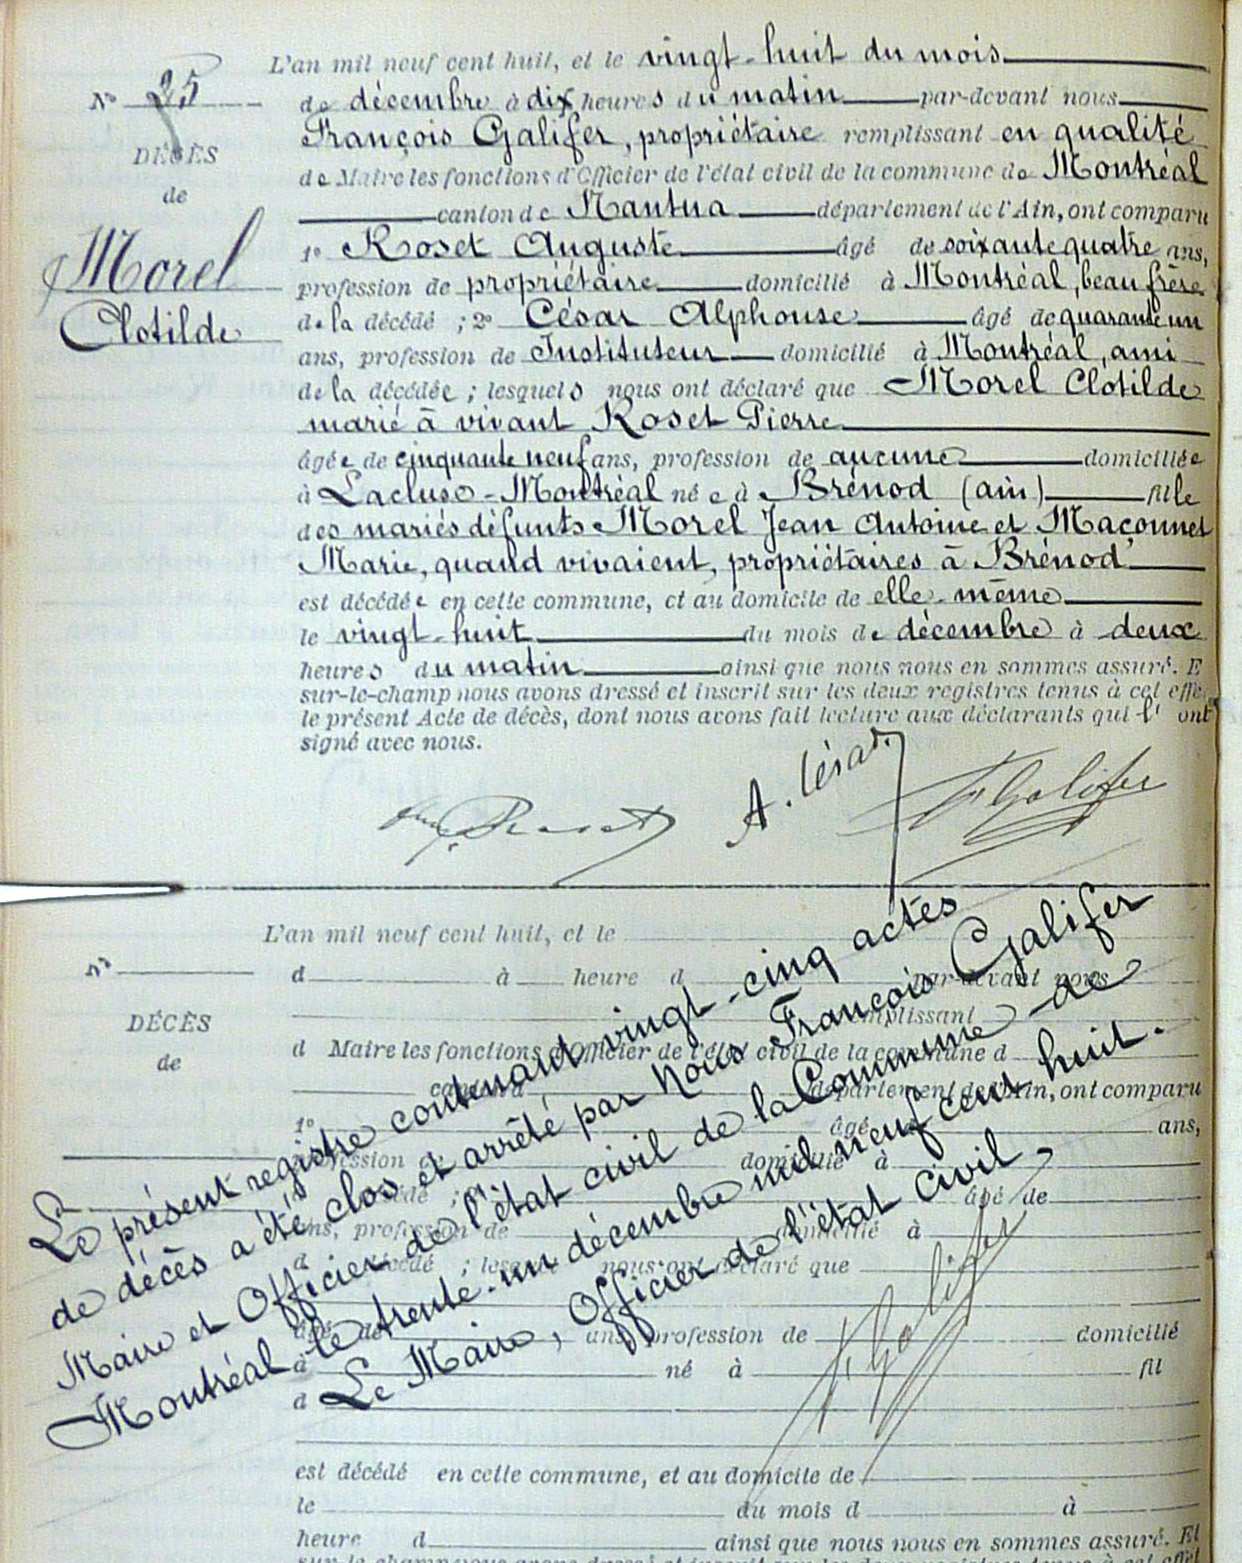 L'an mil neuf cent huit, et le vingt-huit du mois
N° 25
de décembre à dix heures du matin par-devant nous
François Galifer, propriétaire remplissant en qualité
DÉCÈS
de Maire les fonctions d'Officier de l'état civil de la commune de Montréal
de
canton de Nantua département de l'Ain, ont comparu
Morel
Clotilde
1° Roset Auguste âgé de soixante quatre ans,
profession de propriétaire domicilié à Montréal, beau frère
de la décédé ; 2° César Alphonse âgé de quarante un
ans, profession de Instituteur domicilié à Montréal, ami
de la décédée ; lesquels nous ont déclaré que Morel Clotilde
marié à vivant Roset Pierre
âgée de cinquante neuf ans, profession de aucune domiciliée
à Lacluse-Montréal née à Brénod (ain) fille
des mariés défunts Morel Jean Antoine et Maçonnet
Marie, quand vivaient, propriétaires à Brénod
est décédée en cette commune, et au domicile de elle-même
le vingt-huit du mois de décembre à deux
heures du matin ainsi que nous nous en sommes assuré. E
sur-le-champ nous avons dressé et inscrit sur les deux registres tenus à cet effe
le présent Acte de décès, dont nous avons fait lecture aux déclarants qui l' ont
signé avec nous.
A. César
F Galifer
L'an mil neuf cent huit, et le
N°
d à heure d par-devant nous
remplissant
DÉCÈS
de
d Maire les fonctions d'Officier de l'état civil de la commune d
canton d département de l'Ain, ont comparu
1° âgé ans,
profession de domicilié à
décédé ; âgé de
ans, profession de domicilié à
d décédé ; lesquels nous ont déclaré que
âgé de ans, profession de domicilié
à né à fil
d
est décédé en cette commune, et au domicile de
le du mois d à
heure d ainsi que nous nous en sommes assuré. Et
Le présent registre contenant vingt-cinq actes
de décès a été clos et arrêté par Nous François Galifer
Maire et Officier de l'état civil de la Commune de
Montréal le trente-un décembre mil neuf cent huit.
Le Maire, Officier de l'état civil,
F. Galifer